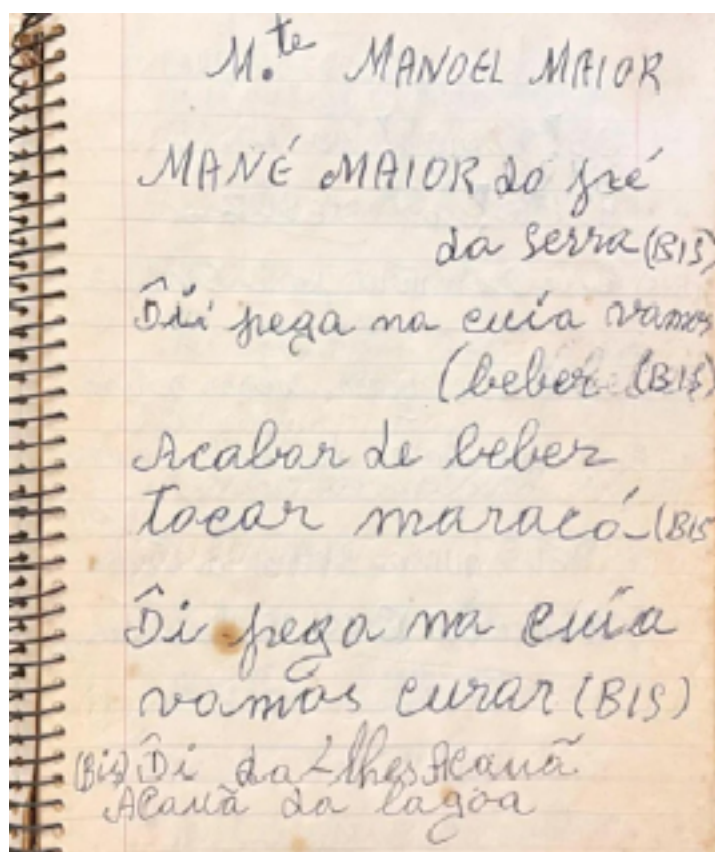 M.te MANOEL MAIOR
MANÉ MAIOR do pé
da serra (BIS)
Ôi pega na cuia vamos
(beber (BIS)
Acabar de beber
tocar maracó-(BIS
Ôi pega na cuia
vamos curar (BIS)
(Bis) Ôi da-lhes Acauã
Acauã da lagoa